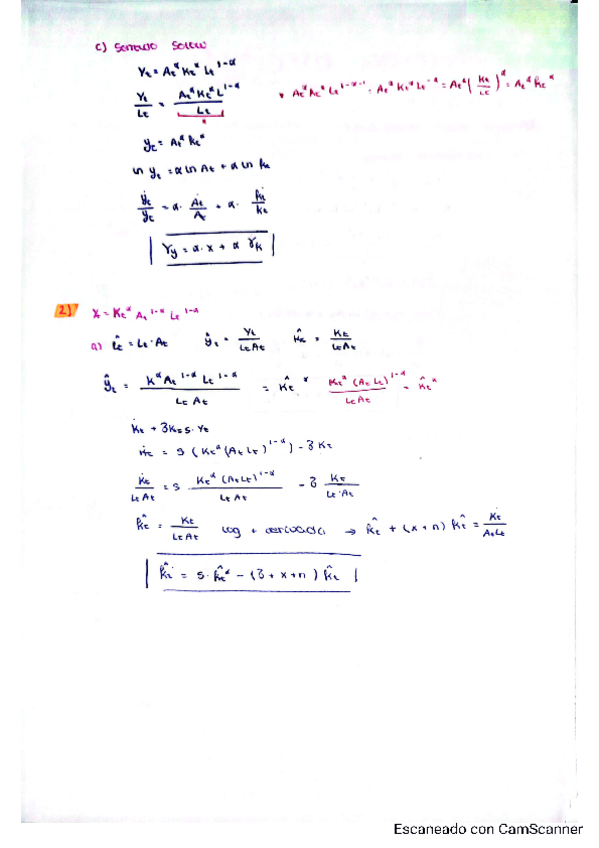 c) Sentido Solow
Yt = At^α Kt^α Lt^1-α
Yt/Lt = At^α Kt^α L^1-α / Lt
* At^α Kt^α Lt^1-α-1 = At^α Kt^α Lt^-α = At^α (Kt/Lt)^α = At^α kt^α
yt = At^α kt^α
ln yt = α ln At + α ln kt
ẏt/yt = α · Ȧt/A + α · k̇t/kt
γy = α · x + α γk
2) Yt = Kt^α At^1-α Lt^1-α
a) L̂t = Lt · At ŷt = Yt/LtAt k̂t = Kt/LtAt
ŷt = K^α At^1-α Lt^1-α / Lt At = k̂t^α Kt^α (At Lt)^1-α / LtAt = k̂t^α
K̇t + δKt = s · Yt
K̇t = s (Kt^α (At Lt)^1-α) - δ Kt
K̇t/LtAt = s · Kt^α (At Lt)^1-α / LtAt - δ Kt/Lt·At
k̂t = Kt/LtAt log + derivada → k̂t + (x+n) k̂t = K̇t/AtLt
k̂t = s · k̂t^α - (δ + x + n) k̂t
Escaneado con CamScanner